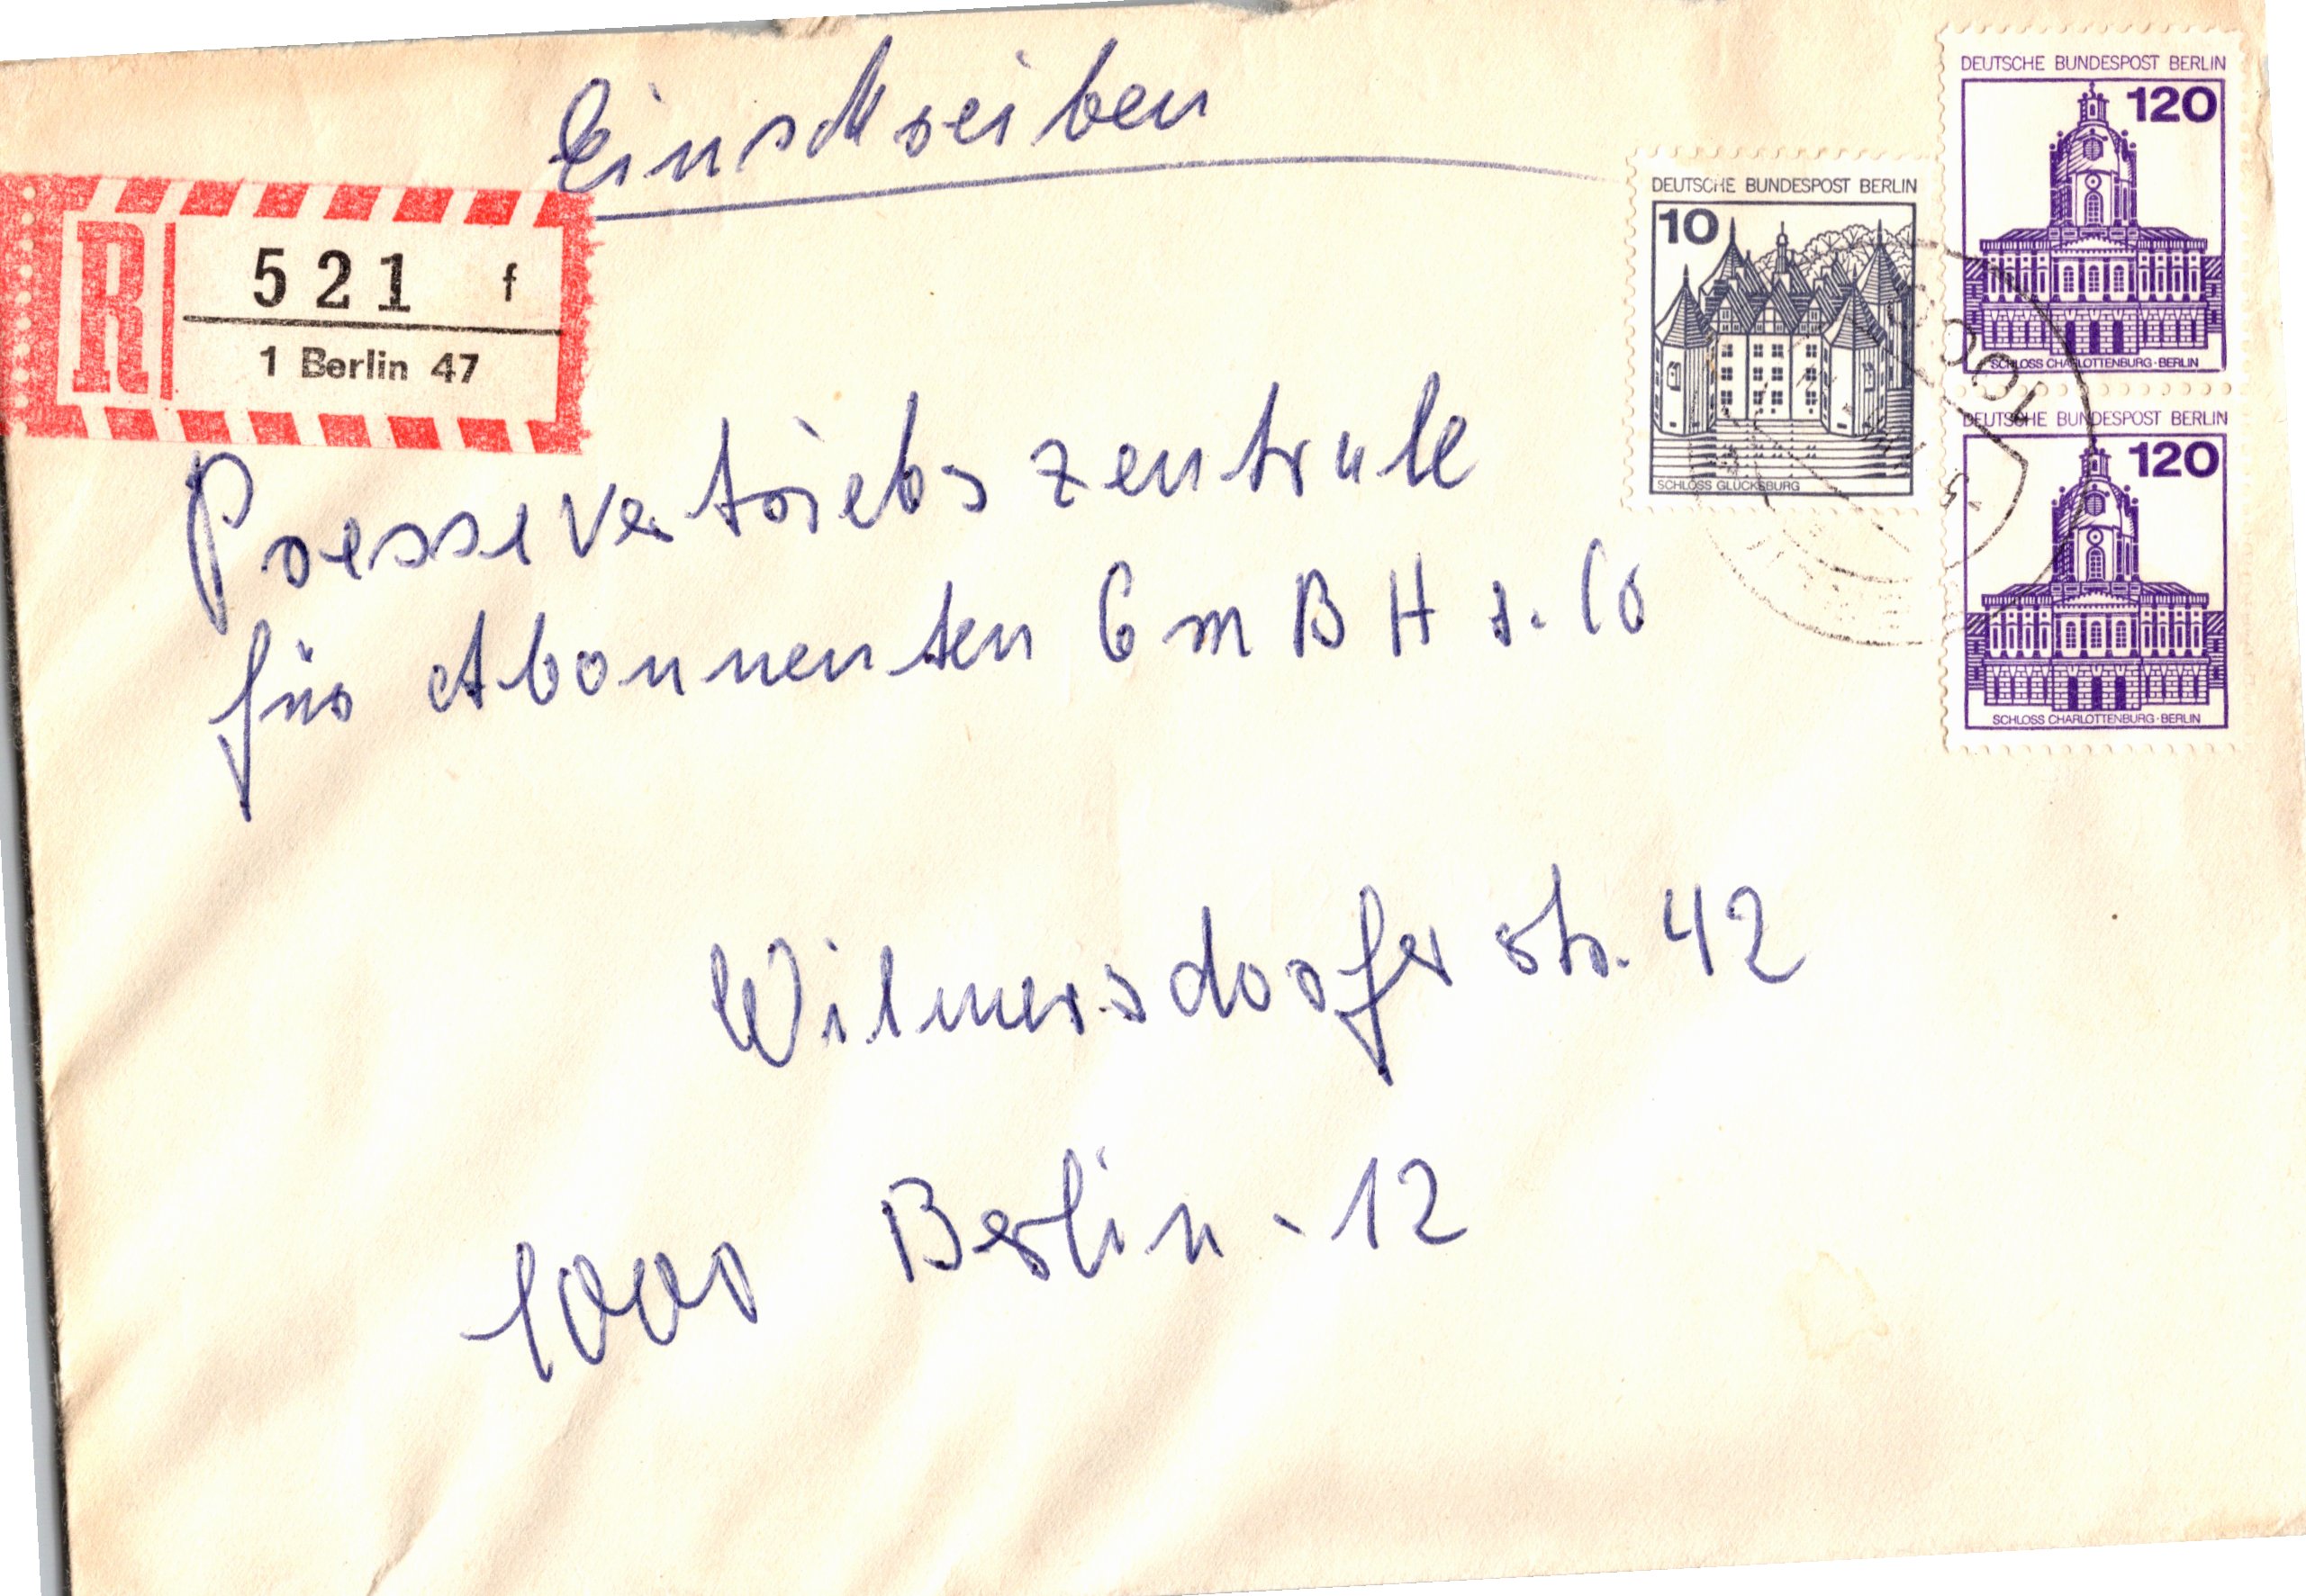 Einschreiben
R
521 f
1 Berlin 47
DEUTSCHE BUNDESPOST BERLIN
10
SCHLOSS GLÜCKSBURG
DEUTSCHE BUNDESPOST BERLIN
120
SCHLOSS CHARLOTTENBURG·BERLIN
DEUTSCHE BUNDESPOST BERLIN
120
SCHLOSS CHARLOTTENBURG·BERLIN
1000
Pressevertriebszentrale
für Abonnenten GmBH &. Co
Wilmersdorfer Str. 42
1000 Berlin - 12